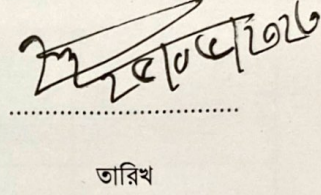 ২৫/০৫/২০২৩
তারিখ